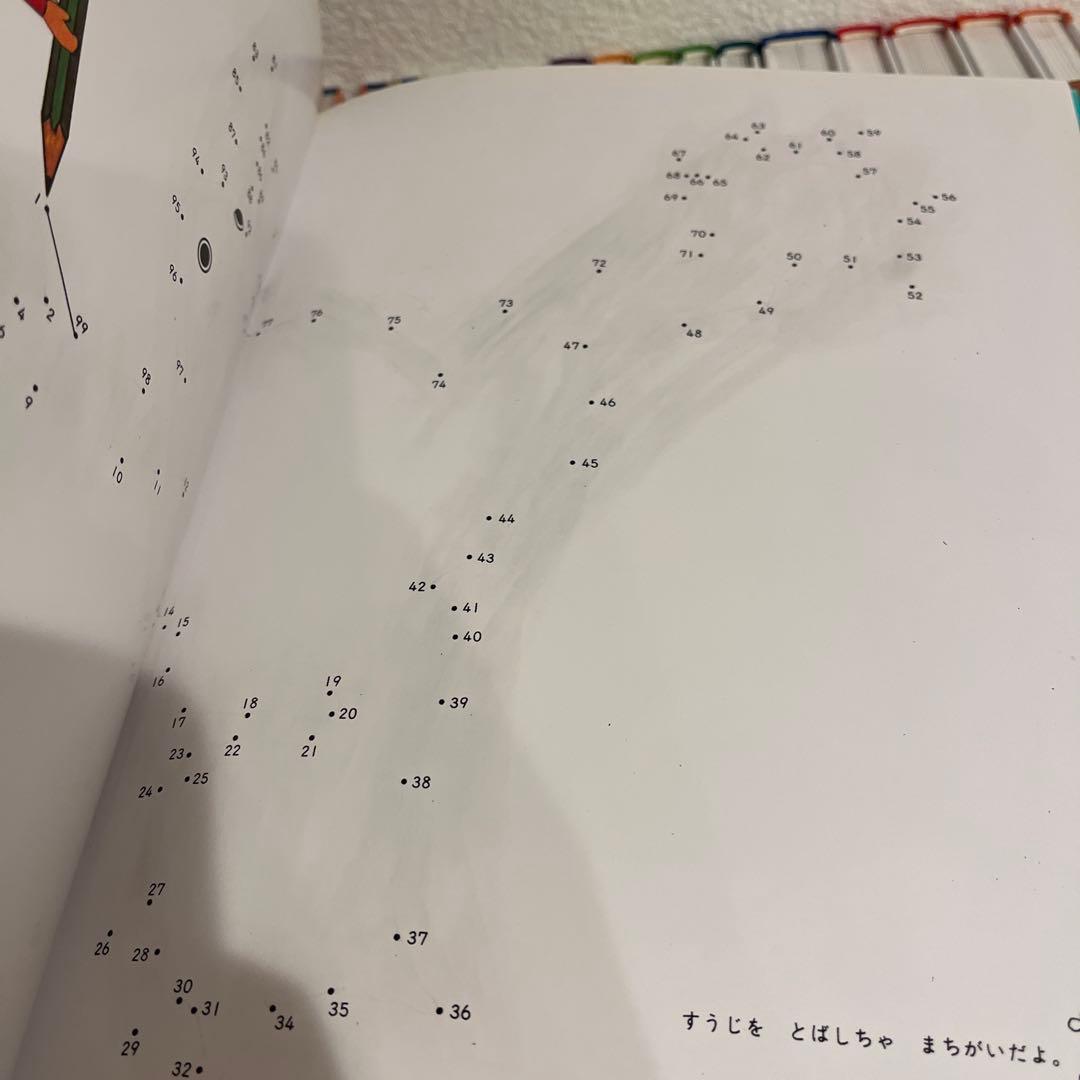 63
64
60
59
61
67
62
58
57
68
66
65
69
56
55
54
70
71
50
51
53
72
52
73
49
76
75
77
48
47
74
46
45
44
43
42
41
40
14
15
16
19
39
18
17
20
23
22
21
25
24
38
27
26
28
37
30
31
34
35
36
29
32
1
2
99
9
10
11
98
96
95
94
すうじを とばしちゃ まちがいだよ。